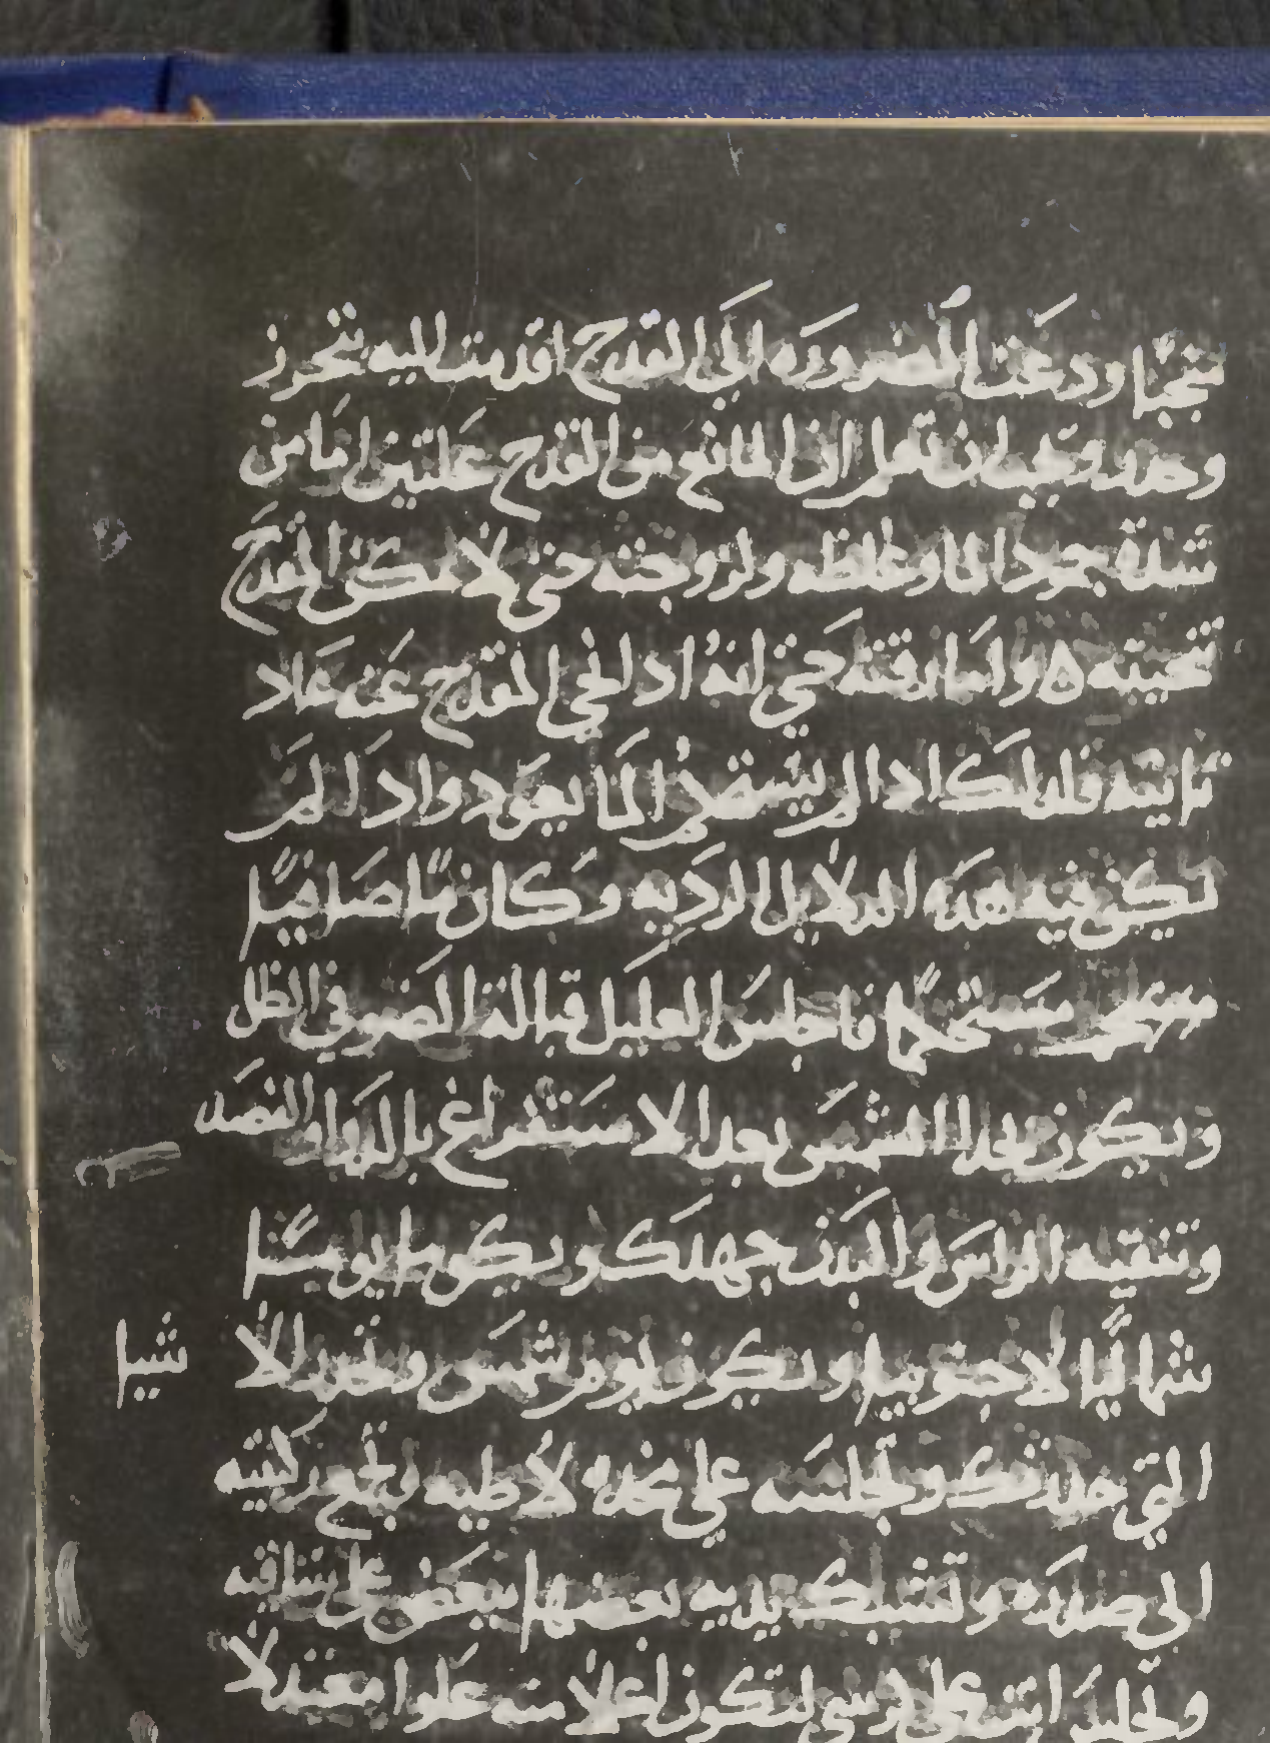 ودعت الضروره الى القدح اقدمت اليه بتحرز
وحذر ويجب ان تعلم ان المانع من القدح علتين اما من
شدة جمود الما وغلظه ولزوجته حتى لا يمكن القدح
تنحيته ه واما رقته حتى انه اذا نحي القدح عنه عاد
ثانيه فلذلك اذا لم يستقر الما يعود واذا لم
يكن فيه هذه الدلايل الرديه وكان ما صافيا
مستحكما فاجلس العليل قبالة الضو في الظل
ويكون بحدا الشمس بعد الاستفراغ بالدوا والفصد
وتنقيه الراس والبدن جهدك ويكون يومنا
شماليا لا جنوبيا ويكون يوم شمس وتعد الالا
شيا
التي حدثك وتجلسه على مخده لاطيه وتجمع ركبتيه
الى صدره وتشبك يديه بعضها ببعض على ساقيه
وتجلس انت على كرسي لتكون اعلا منه علوا معتدلا